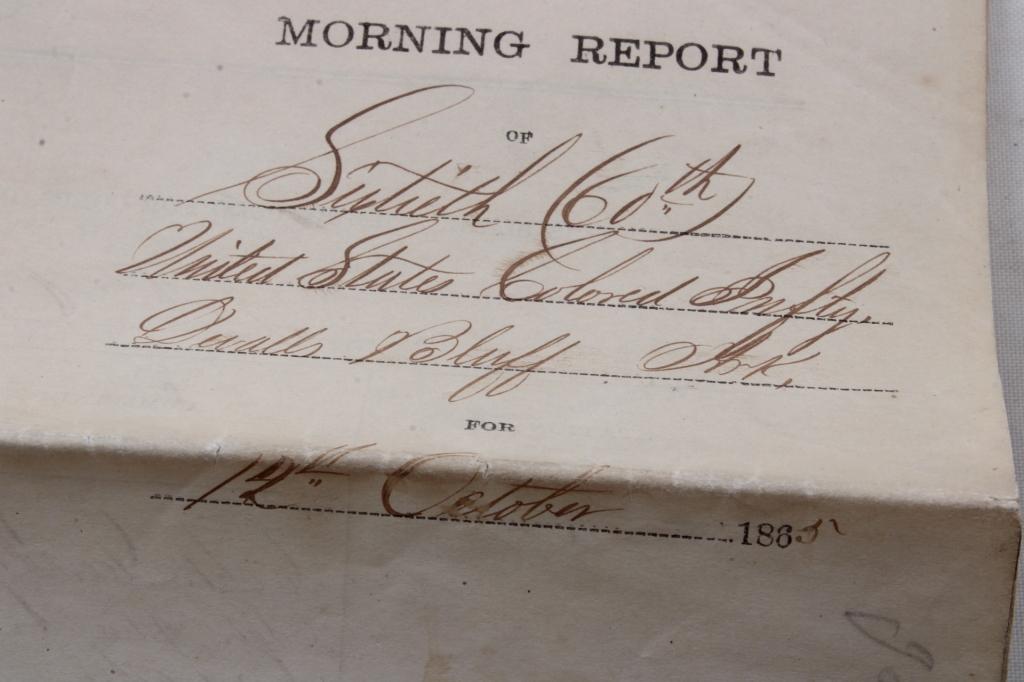 MORNING REPORT
OF
Sixtieth (60th)
United States Colored Infty.
Devalls Bluff Ark.
FOR
12th October 1865